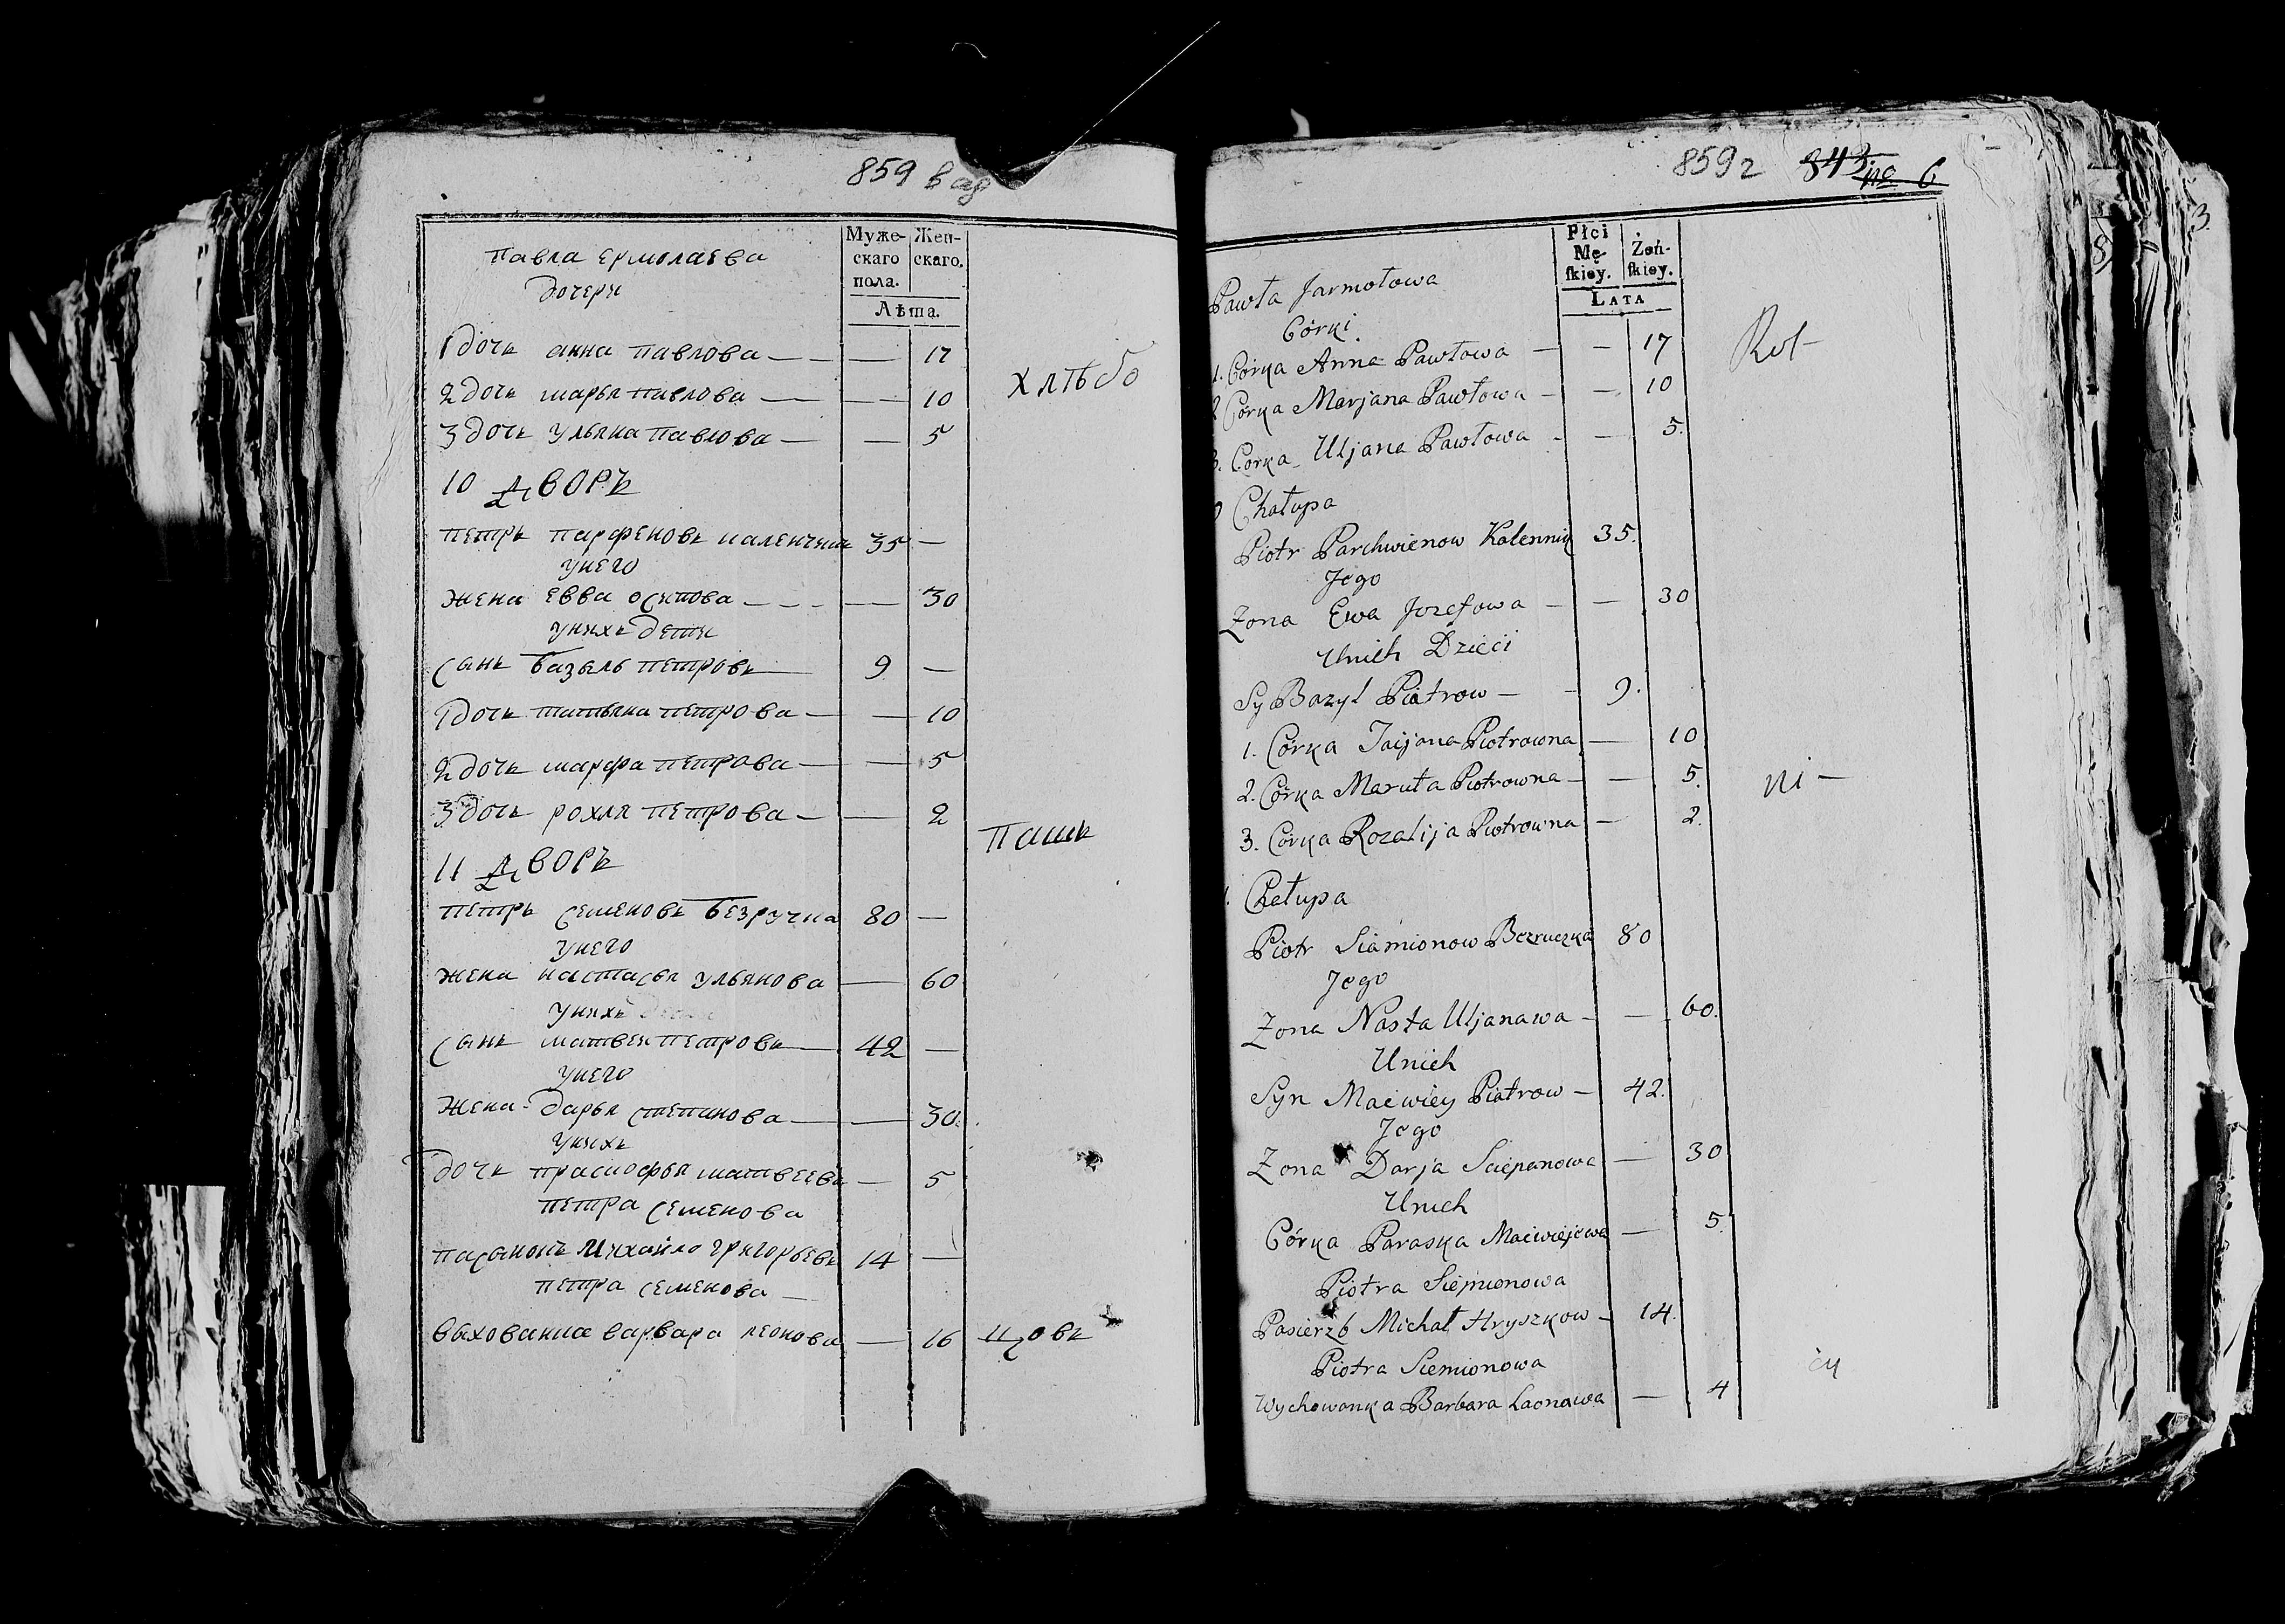 859 в об
Муже-
скаго
пола.
Жен-
скаго.
Лѣта.
Павла Ермолаева
дочери
1 дочь анна Павлова — — — 17
2 дочь марья Павлова — — 10
3 дочь ульяна Павлова — — 5
хлѣбо
10 Дворъ
Петръ Парфеновъ каленникъ 35 —
у него
жена Евва осипова — — — — 30
у нихъ дети
сынъ базыль Петровъ — 9 —
1 дочь татьяна Петрова — — 10
2 дочь марфа Петрова — — 5
3 дочь рохля Петрова — — 2
Паш
11 Дворъ
Петръ Семеновъ безручка 80 —
у него
жена настасья ульянова — 60
у нихъ
сынъ матвей Петровъ — 42 —
у него
жена дарья степанова — — 30.
у нихъ
дочь прасковья матвеева — 5
Петра Семенова
пасынокъ Михайло григорьевъ 14 —
Петра Семенова —
выхованка варвара леонова — 16
цовъ
859 г 843 6
Płci
Mę-
ſkiey.
Żeń-
ſkiey.
LATA
Pawła Jarmołowa
Córki
1. Córka Anna Pawłowa — — 17
2 Córka Marjana Pawłowa — — 10
3. Corka Uljana Pawłowa - — 5.
Rol-
Chałupa
Piotr Parchwienow Kalennik 35.
Jego
Zona Ewa Jozefowa — — 30
Unich Dzieci
Sy Bazyl Piatrow — - 9.
1. Córka Taijana Piotrowna — 10
2. Córka Maruta Piotrowna — — 5.
3. Córka Rozalija Piotrowna — 2.
ni —
Chełupa
Piotr Siamionow Bezruczka 80
Jego
Zona Nasta Uljanawa - — 60.
Unich
Syn Maćwiey Piatrow — 42.
Jego
Zona Darja Sciepanowa — 30
Unich
Córka Paraska Maćwiejewa — 5.
Piotra Siemionowa
Pasierzb Michał Hryszkow — 14.
Piotra Siemionowa
Wychowanka Barbara Laonawa — 4
cy